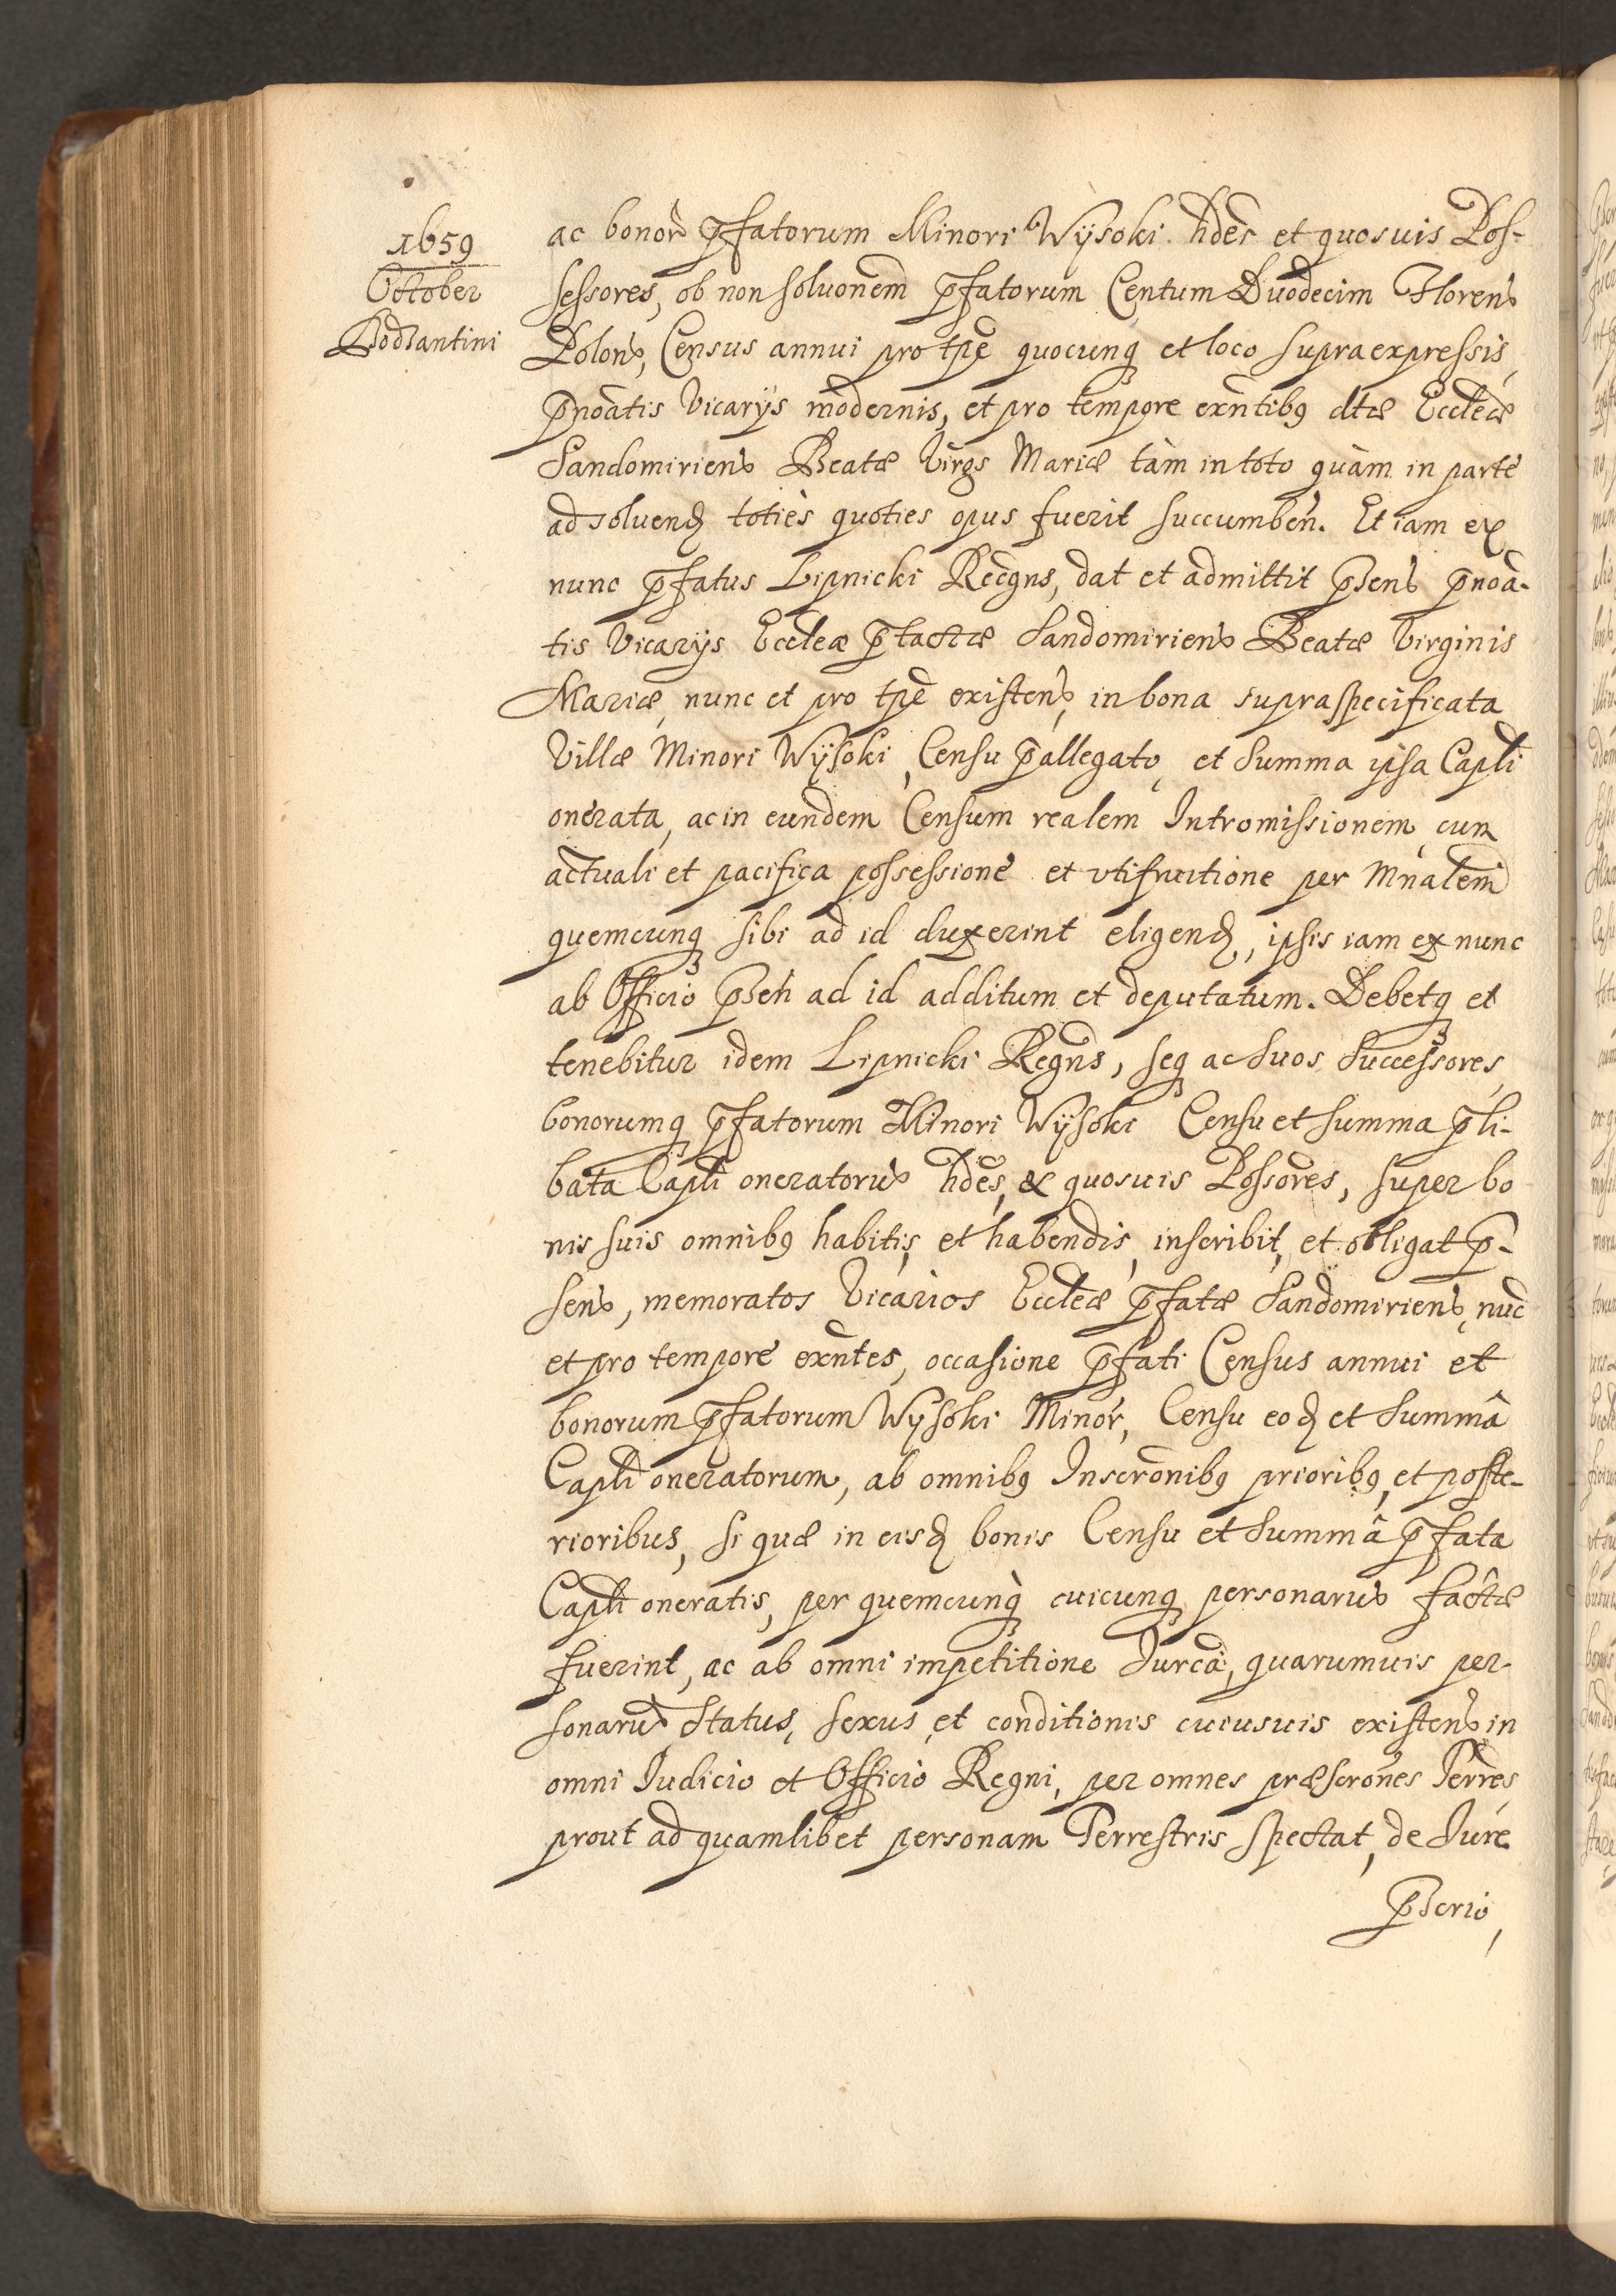 1659
October
Bodzantini
ac bonor̃ p̃fatorum Minori Wÿsoki hdes et quosuis Pos-
sessores, ob non soluõnem p̃fatorum Centum Duodecim Floreñ
Poloñ, Census annui pro tp̃e quocunq et loco supraexpressis,
p̃noãtis Vicarÿs modernis, et pro tempore exñtibq dtæ Eccleæ
Sandomirieñ Beatæ Virgs Mariæ tàm in toto quàm in parte
ad soluend toties quoties opus fuerit succumbeñ. Et iam ex
nunc p̃fatus Lipnicki Recgns, dat et admittit p̃señ p̃noã-
tis Vicarÿs Eccleæ p̃tactæ Sandomirieñ Beatæ Virginis
Mariæ, nunc et pro tp̃e existeñ, in bona supraspecificata
Villæ Minori Wÿsoki, Censu p̃allegato, et Summa ipsa Capli
onerata, ac in eundem Censum realem Intromissionem, cum
actuali et pacifica possessione et vtifruitione per Mñalem
quemcunq sibi ad id duxerint eligend, ipsis iam ex nunc
ab Officio p̃señ ad id additum et deputatum. Debetq et
tenebitur idem Lipnicki Regñs, seq ac Suos Successores,
bonorumq p̃fatorum Minori Wÿsoki Censu et Summa p̃li-
bata Capli oneratorũ hdes, & quosuis Possores, super bo
nis suis omnibq habitis, et habendis, inscribit, et obligat p̃-
señ, memoratos Vicarios Eccleæ p̃fatæ Sandomirieñ, nũc
et pro tempore exñtes, occasione p̃fati Census annui et
bonorum p̃fatorum Wÿsoki Minor, Censu eod et Summâ
Capli oneratorum, ab omnibq Inscrõnibq prioribq, et poste-
rioribus, si quæ in eisd bonis Censu et Summâ p̃fata
Capli oneratis, per quemcunq cuicunq personarũ factæ
fuerint, ac ab omni impetitione Jurcã, quarumuis per-
sonarũ Status, sexus, et conditionis cuiusuis existeñ in
omni Judicio et Officio Regni, per omnes præscrões Terres,
prout ad quamlibet personam Terrestris spectat, de Jure
p̃scrio,